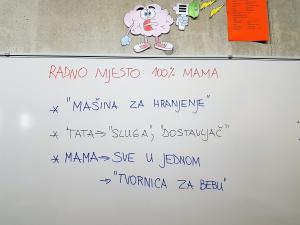 RADNO MJESTO: 100% MAMA
* "MAŠINA ZA HRANJENJE"
* TATA→"SLUGA", "DOSTAVLJAČ"
* MAMA→ SVE U JEDNOM
→"TVORNICA ZA BEBU"